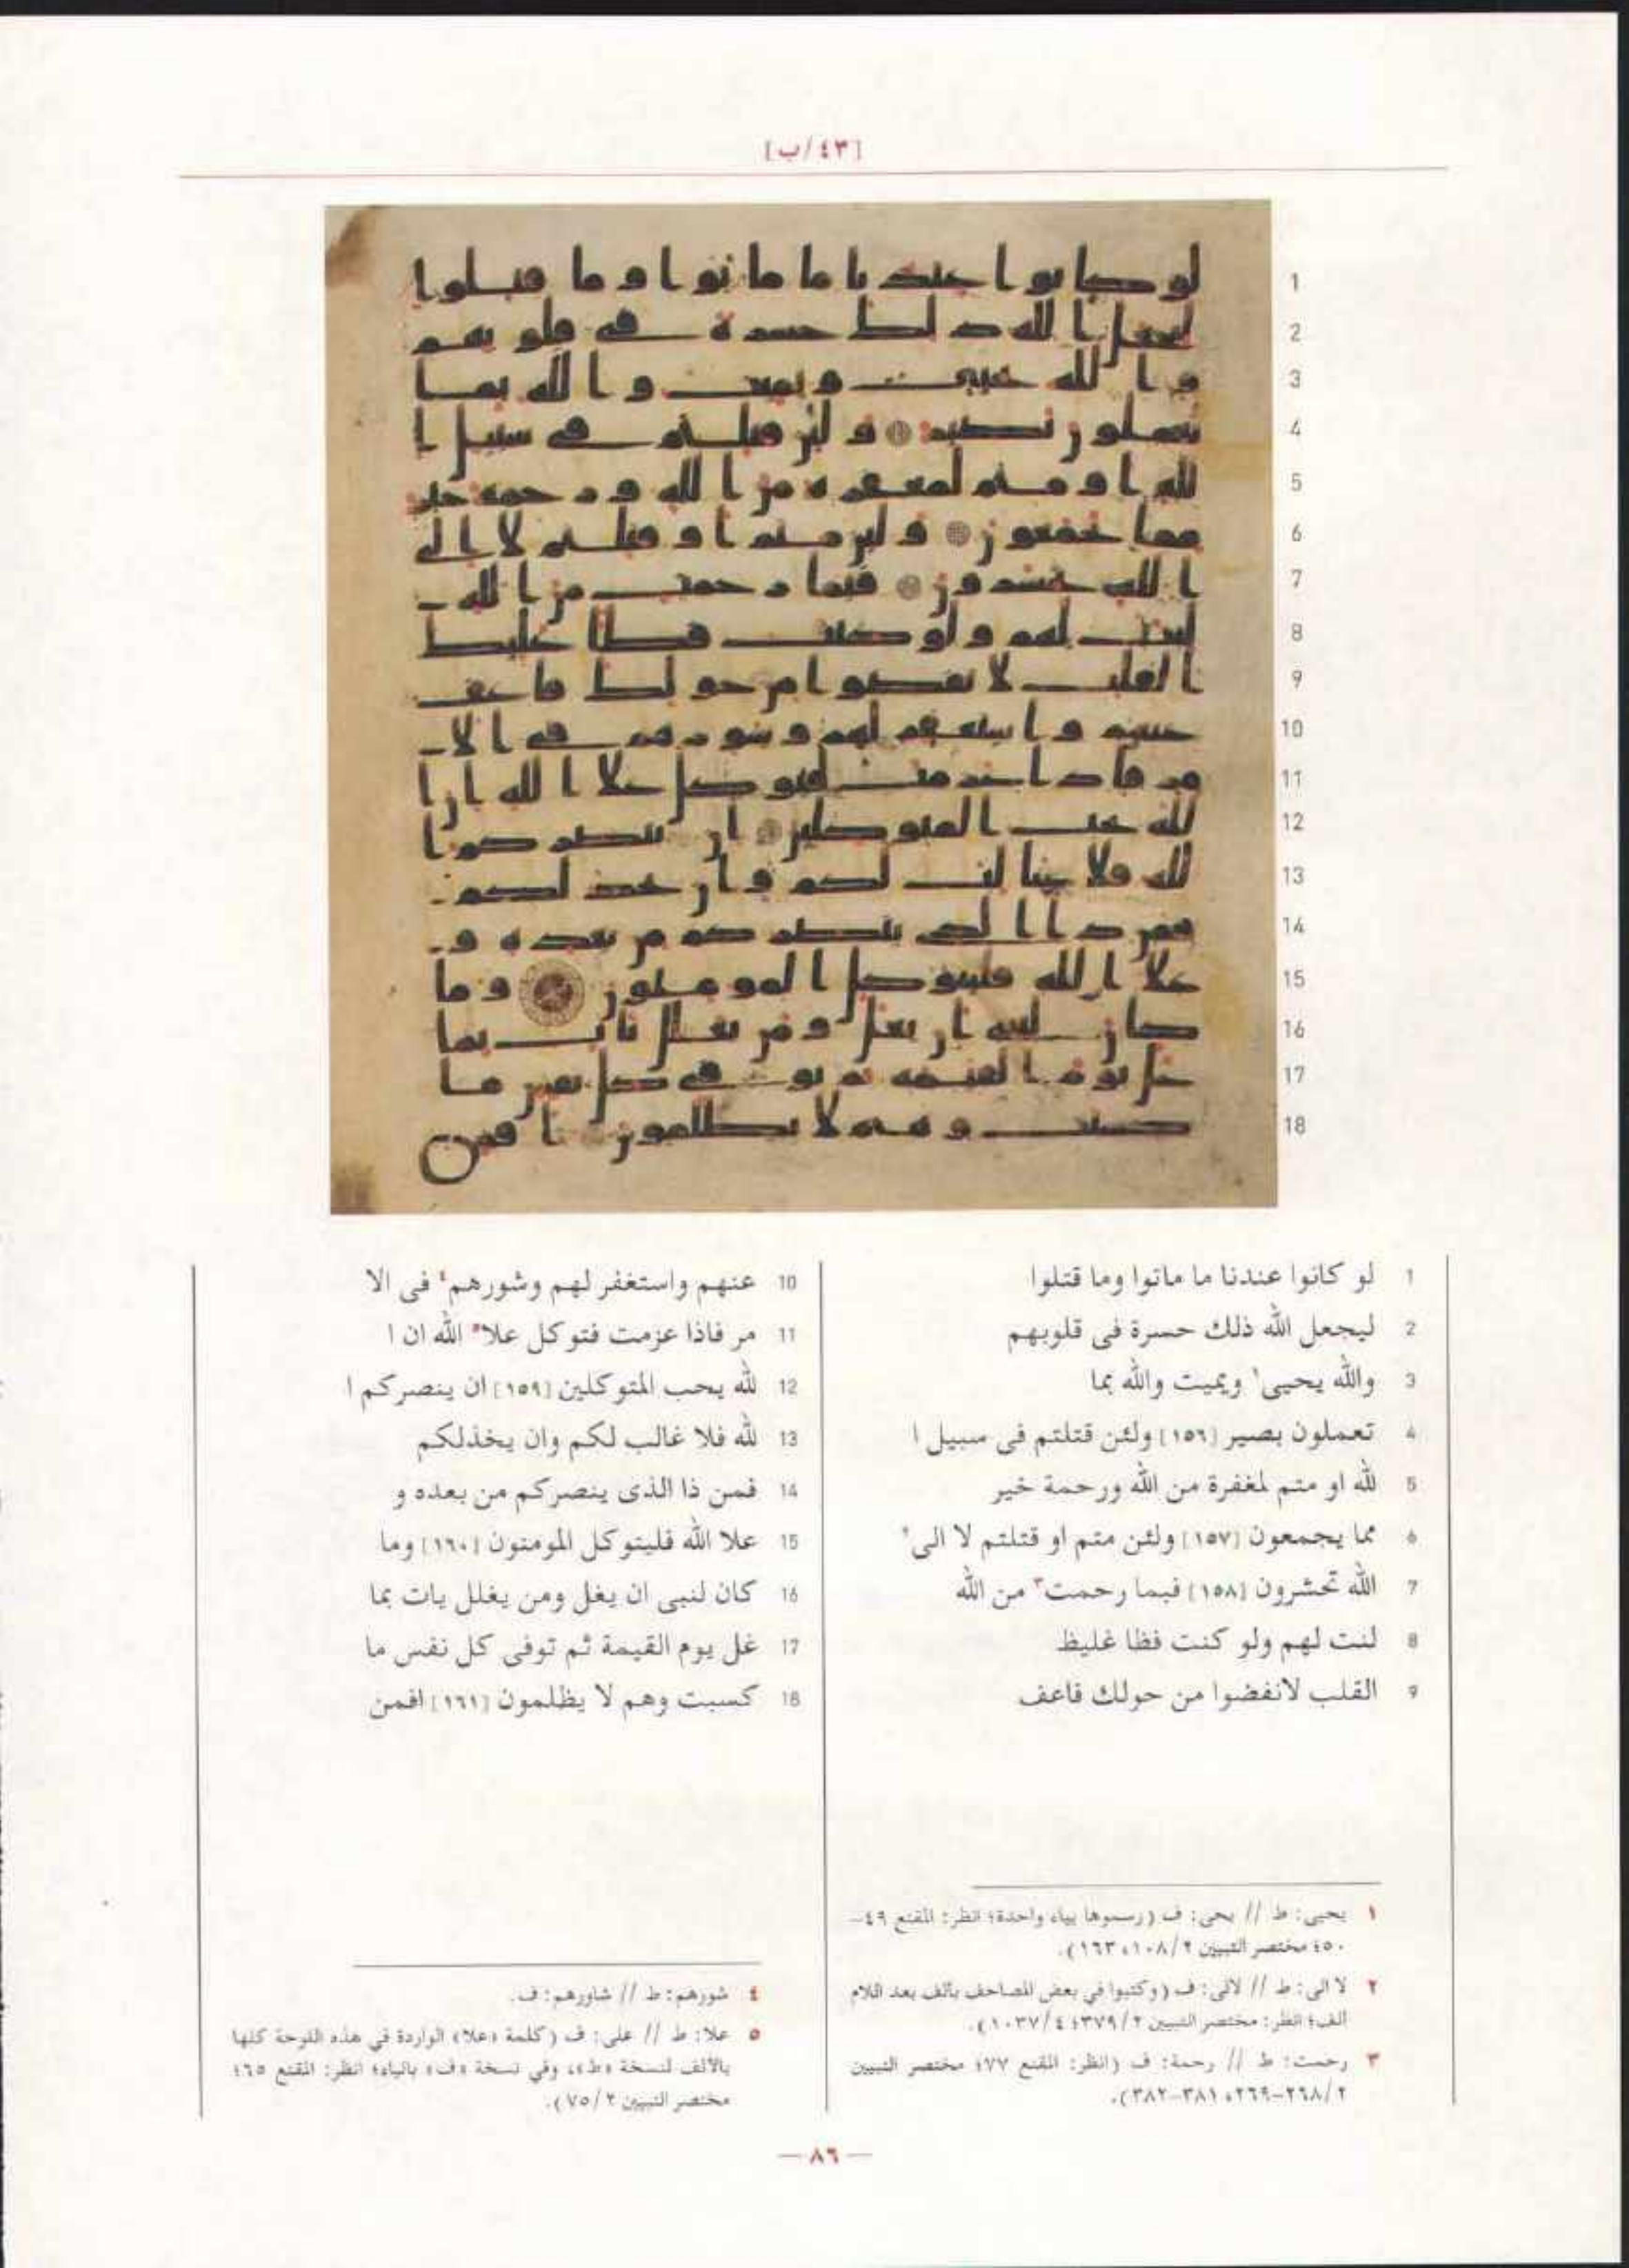 [٤٣/ب]
1 لو كانوا عندنا ما ماتوا وما قتلوا
2 ليجعل الله ذلك حسرة فى قلوبهم
3 والله يحيى١ ويميت والله بما
4 تعملون بصير [١٥٦] ولئن قتلتم فى سبيل ا
5 لله او متم لمغفرة من الله ورحمة خير
6 مما يجمعون [١٥٧] ولئن متم او قتلتم لا الى٢
7 الله تحشرون [١٥٨] فبما رحمت٣ من الله
8 لنت لهم ولو كنت فظا غليظ
9 القلب لانفضوا من حولك فاعف
10 عنهم واستغفر لهم وشورهم٤ فى الا
11 مر فاذا عزمت فتوكل علا٥ الله ان ا
12 لله يحب المتوكلين [١٥٩] ان ينصركم ا
13 لله فلا غالب لكم وان يخذلكم
14 فمن ذا الذى ينصركم من بعده و
15 علا الله فليتوكل المومنون [١٦٠] وما
16 كان لنبى ان يغل ومن يغلل يات بما
17 غل يوم القيمة ثم توفى كل نفس ما
18 كسبت وهم لا يظلمون [١٦١] افمن
١ يحيى: ط // يحى: ف (رسموها بياء واحدة؛ انظر: المقنع ٤٩–
٥٠؛ مختصر التبيين ٢/١٠٨، ١٦٣).
٢ لا الى: ط // لالى: ف (وكتبوا في بعض المصاحف بألف بعد اللام
ألف؛ انظر: مختصر التبيين ٢/٣٧٩؛ ٤/١٠٣٧).
٣ رحمت: ط // رحمة: ف (انظر: المقنع ٧٧؛ مختصر التبيين
٢/٢٦٨–٢٦٩، ٣٨١–٣٨٢).
٤ شورهم: ط // شاورهم: ف.
٥ علا: ط // على: ف (كلمة «علا» الواردة في هذه اللوحة كلها
بالألف لنسخة «ط»، وفي نسخة «ف» بالياء؛ انظر: المقنع ٦٥؛
مختصر التبيين ٢/٧٥).
— ٨٦ —